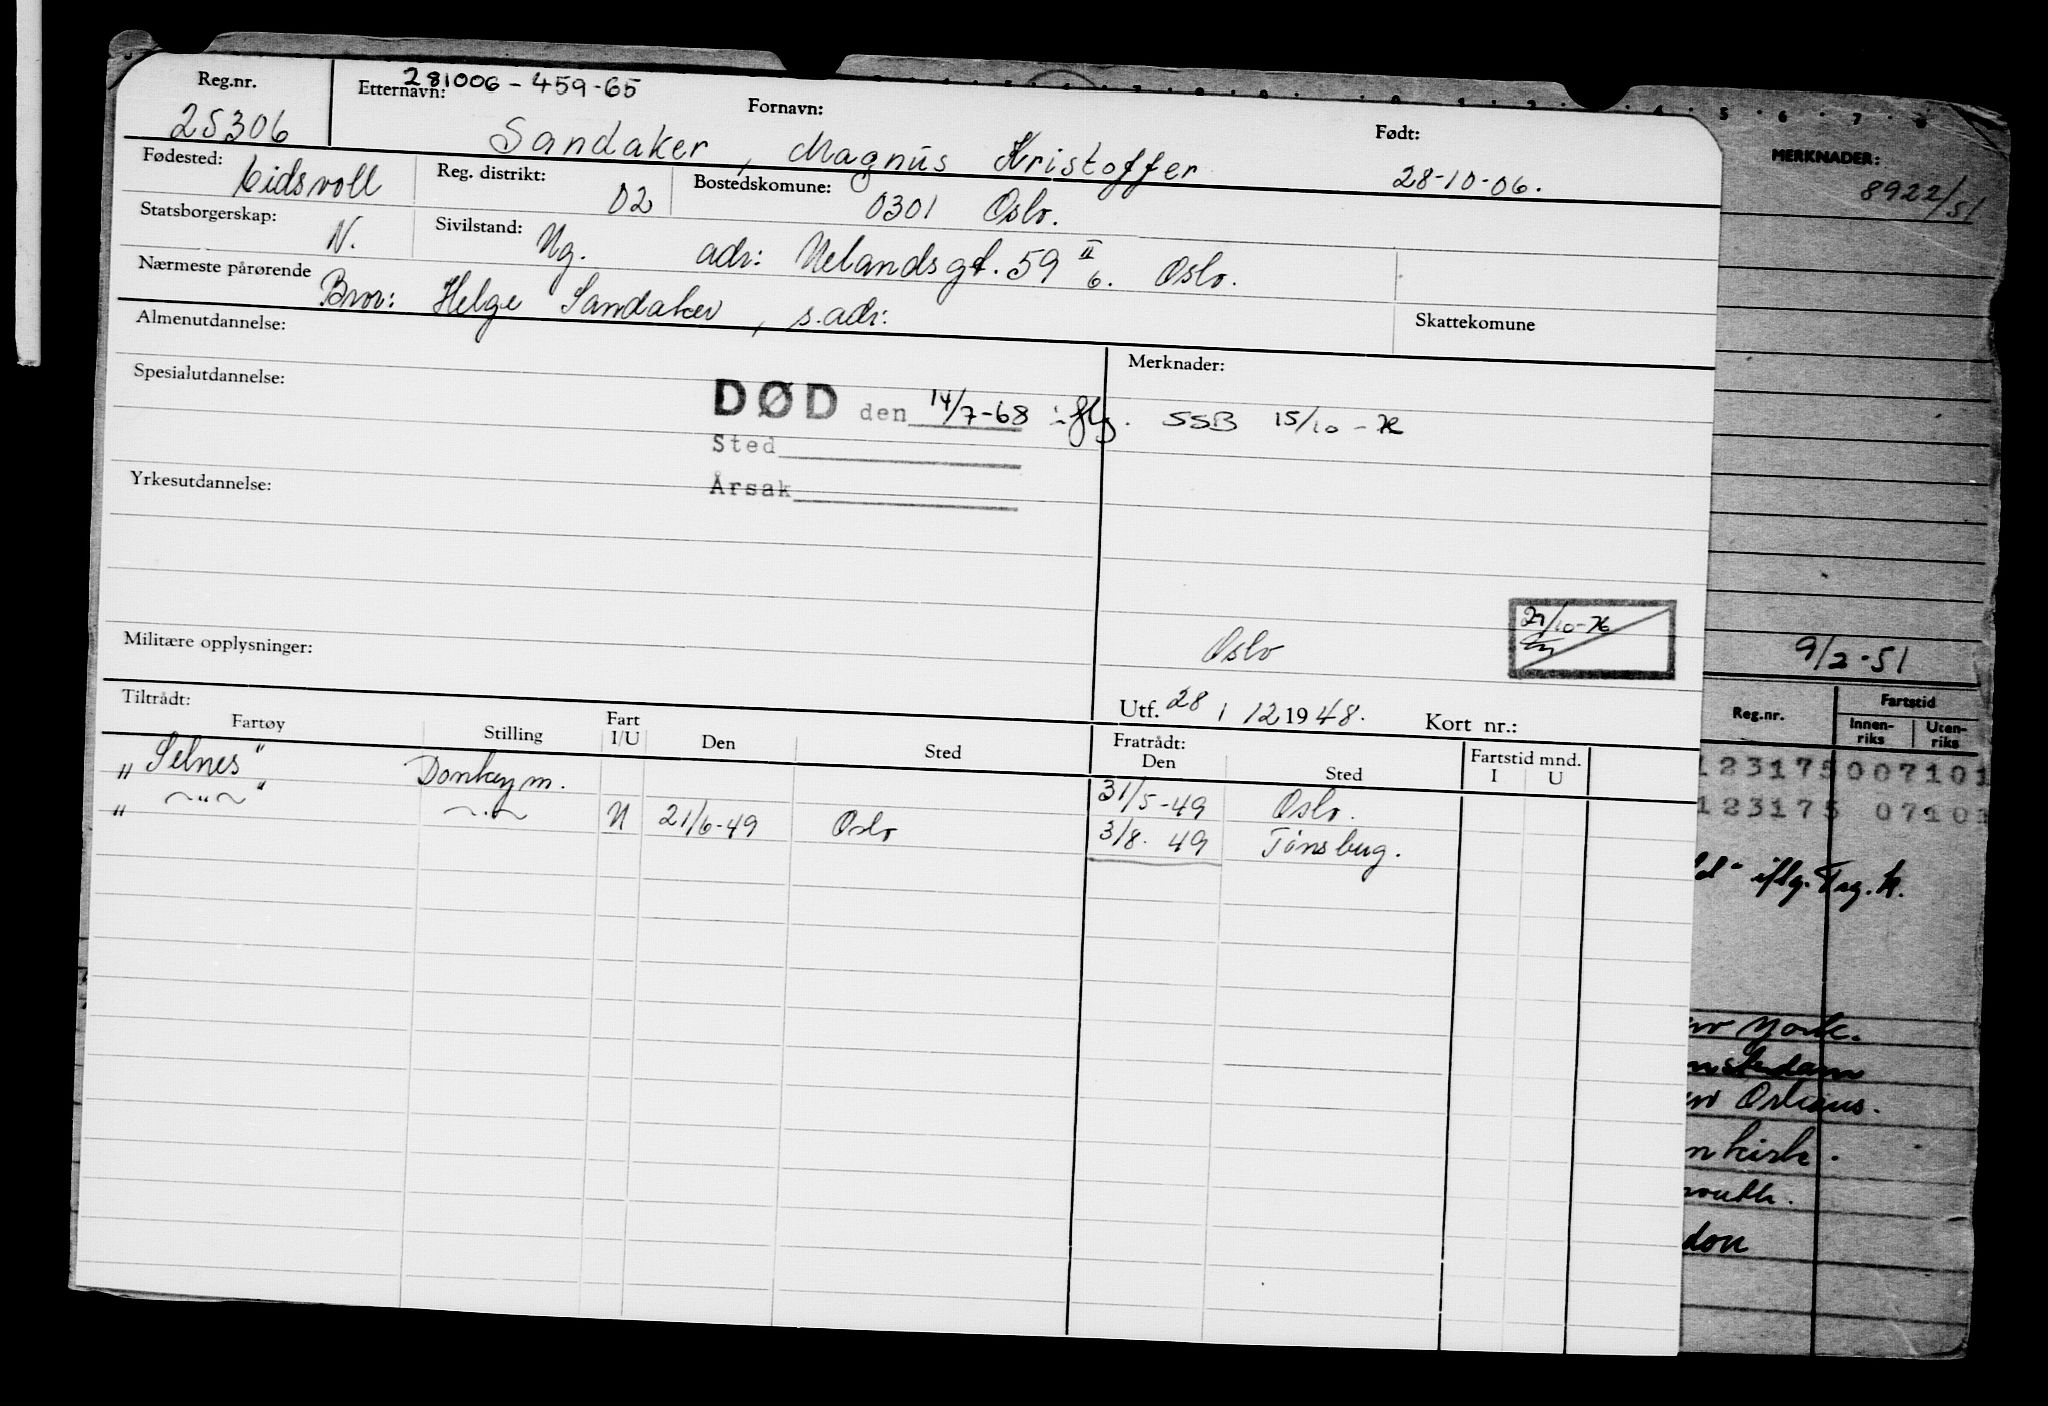 281006-459-65
Reg.nr. Etternavn: Fornavn: Født:
25306 Sandaker, Magnus Kristoffer 28-10-06.
Fødested: Eidsvoll Reg. distrikt: 02 Bostedskomune: 0301 Oslo.
Statsborgerskap: N. Sivilstand: Ug. adr: Uelandsgt. 59 II 6. Oslo.
Nærmeste pårørende Bror: Helge Sandaker, s.adr. Skattekomune
Almenutdannelse: Merknader:
Spesialutdannelse:
DØD den 14/7-68 iflg. SSB 15/10-76
Sted
Årsak
Yrkesutdannelse:
Oslo 21/10-76
Militære opplysninger:
Utf. 28/12 1948. Kort nr.:
Tiltrådt: Fratrådt:
Fartøy Stilling Fart I/U Den Sted Den Sted Fartstid mnd. I U
"Selnes" Donkeym. 31/5-49 Oslo.
" ~"~ " ~"~ U 21/6-49 Oslo 3/8. 49 Tønsberg.
MERKNADER:
8922/51
9/2-51
Reg.nr. Fartstid
Innen-riks Uten-riks
123175 007101
123175 07101
ld" iflg. Trg.k.
ew York.
msterdam
ew Orleans.
nkirk.
mouth.
don